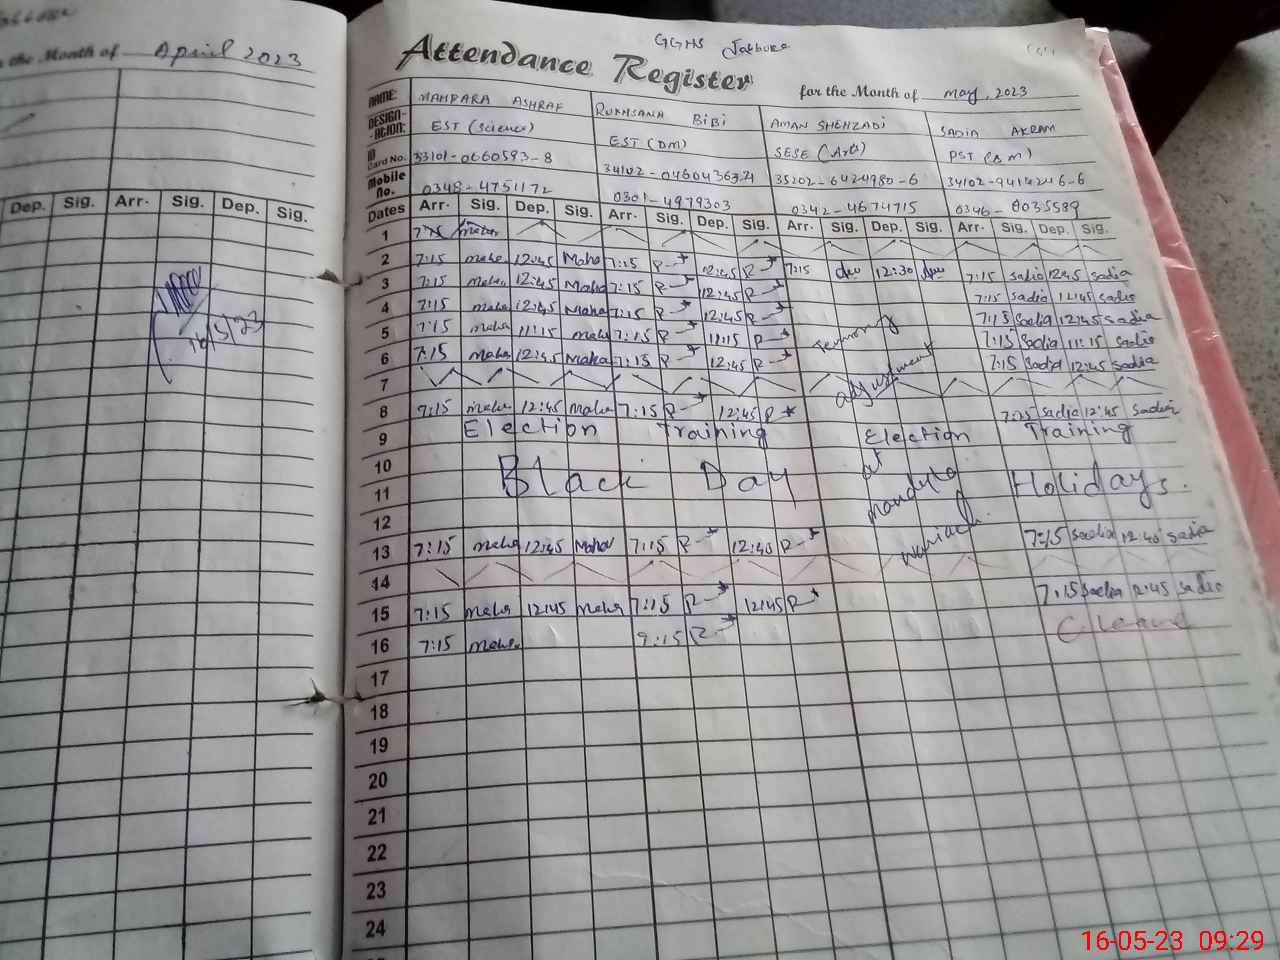 the Month of April 2023
Dep. Sig. Arr. Sig. Dep. Sig.
16/5/23
GGHS
Attendance Register
for the Month of may, 2023
NAME: MAHPARA ASHRAF RUKHSANA BIBI AMAN SHEHZADI SADIA AKRAM
DESIGN-ATION: EST (Science) EST (DM) SESE (Arts) PST (BM)
ID Card No. 33101-0660593-8 35202-6424980-6 34102-9414246-6
Mobile No. 0348-4751172 0301-4979303 0342-4674715 0346-8035589
Dates Arr. Sig. Dep. Sig. Arr. Sig. Dep. Sig. Arr. Sig. Dep. Sig. Arr. Sig. Dep. Sig.
1
2 7:15 Maha 12:45 Maha 7:15 R 12:45 R 7:15 12:30 7:15 Sadia 12:45 Sadia
3 7:15 Maha 12:45 Maha 7:15 R 12:45 R 7:15 Sadia 12:45 Sadia
4 7:15 Maha 12:45 Maha 7:15 R 12:45 R 7:15 Sadia 12:45 Sadia
5 7:15 Maha 11:15 Maha 7:15 R 11:15 R 7:15 Sadia 11:15 Sadia
6 7:15 Maha 12:45 Maha 7:15 R 12:45 R 7:15 Sadia 12:45 Sadia
7 adjustment
8 7:15 Maha 12:45 Maha 7:15 R 12:45 R 7:15 Sadia 12:45 Sadia
9 Election Training Election Training
10 Black Day at Holidays.
11
12
13 7:15 Maha 12:45 Maha 7:15 R 12:45 R 7:15 Sadia 12:45 Sadia
14
15 7:15 Maha 12:45 Maha 7:15 R 12:45 R 7:15 Sadia 12:45 Sadia
16 7:15 Maha R C. Leave
17
18
19
20
21
22
23
24
16-05-23 09:29